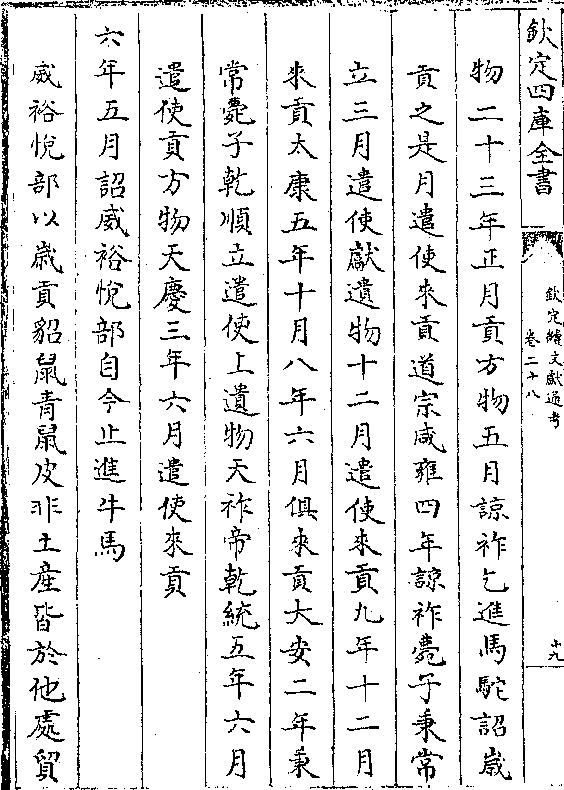 欽定四庫全書
欽定續文獻通考
卷二十八
十九
物二十三年正月貢方物五月諒祚乞進馬駝詔嵗
貢之是月遣使來貢道宗咸雍四年諒祚薨子秉常
立三月遣使獻遺物十二月遣使來貢九年十二月
來貢太康五年十月八年六月俱來貢大安二年秉
常薨子乾順立遣使上遺物天祚帝乾統五年六月
遣使貢方物天慶三年六月遣使來貢
六年五月詔威裕悅部自今止進牛馬
威裕悅部以嵗貢貂鼠青鼠皮非土産皆於他處貿